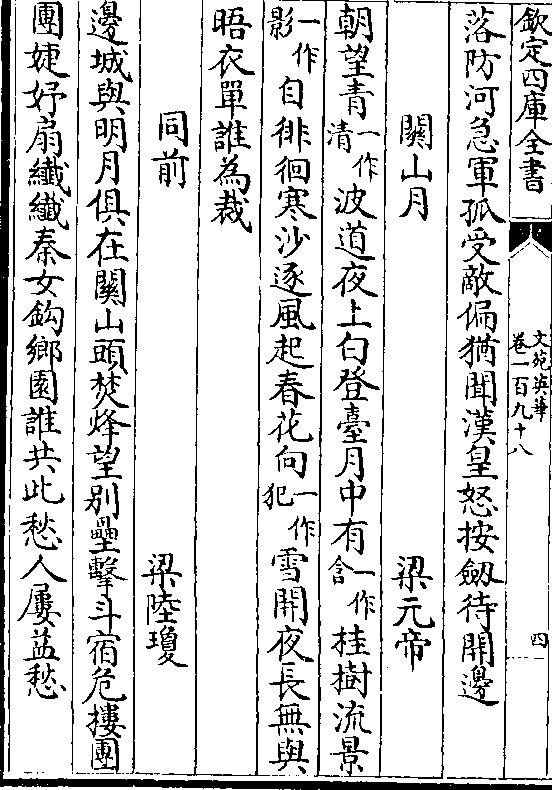 欽定四庫全書
文苑英華
卷一百九十八
四
落防河急軍孤受敵偏猶聞漢皇怒按劒待開邊
關山月 梁元帝
朝望青一作清波道夜上白登臺月中有一作含桂樹流景
一作影自徘徊寒沙逐風起春花向一作犯雪開夜長無與
晤衣單誰為裁
同前 梁陸瓊
邊城與明月俱在關山頭焚烽望别壘擊斗宿危摟團
團婕妤扇纖纖秦女鈎鄉園誰共此愁人屢益愁